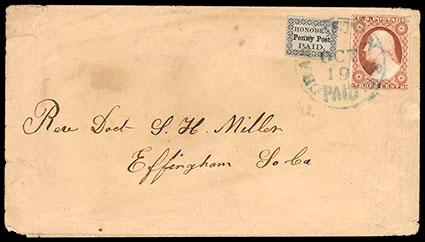 HONOUR'S
Penny Post
PAID.
U.S. POSTAGE
THREE CENTS
OCT
19
PAID
Reve Doct S. H. Miller
Effingham So Ca